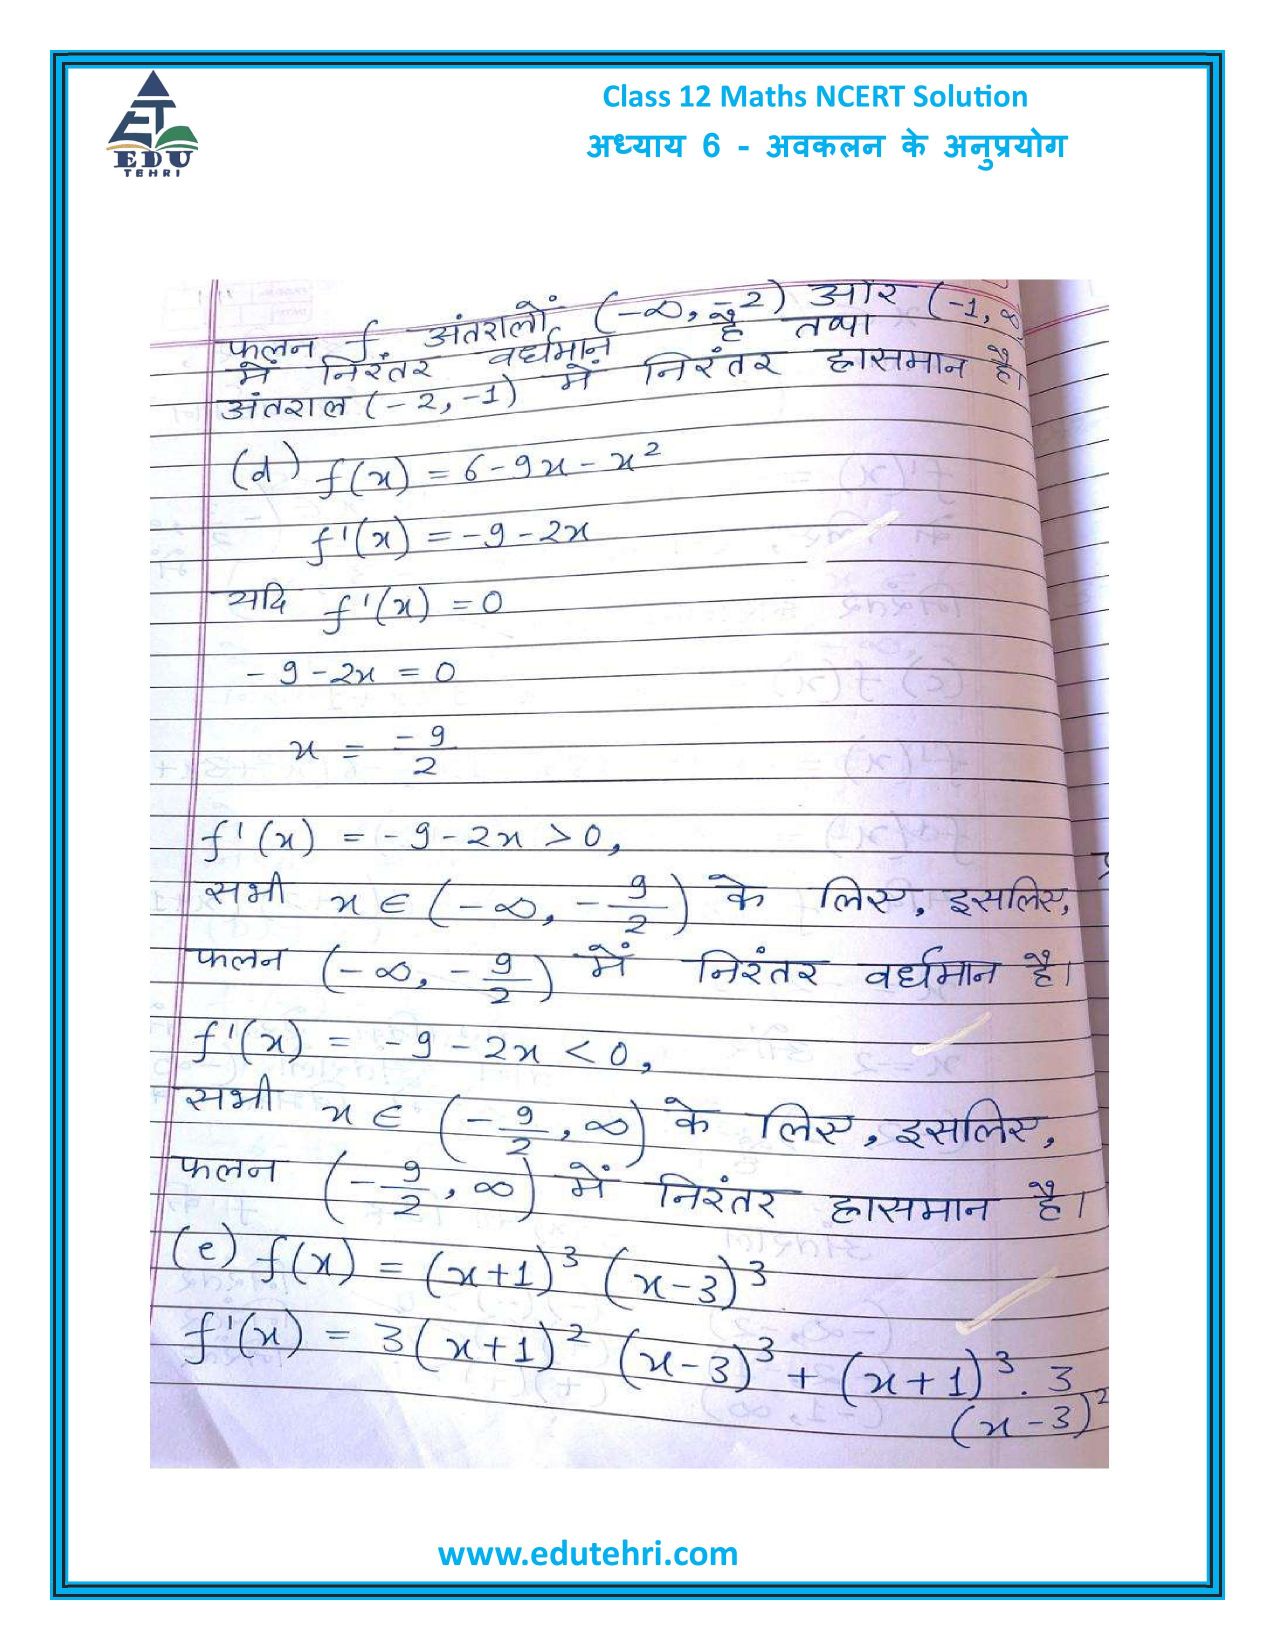 Class 12 Maths NCERT Solution
अध्याय 6 - अवकलन के अनुप्रयोग
ET
EDU
TEHRI
फलन f, अंतरालों (-∞, -2) और (-1, ∞)
में निरंतर वर्धमान है तथा
अंतराल (-2, -1) में निरंतर ह्रासमान है।
(d) f(x) = 6-9x-x²
f'(x) = -9-2x
यदि f'(x) = 0
-9-2x = 0
x = -9/2
f'(x) = -9-2x > 0,
सभी x ∈ (-∞, -9/2) के लिए, इसलिए,
फलन (-∞, -9/2) में निरंतर वर्धमान है।
f'(x) = -9-2x < 0,
सभी x ∈ (-9/2, ∞) के लिए, इसलिए,
फलन (-9/2, ∞) में निरंतर ह्रासमान है।
(e) f(x) = (x+1)³ (x-3)³
f'(x) = 3(x+1)² (x-3)³ + (x+1)³ . 3
(x-3)²
www.edutehri.com